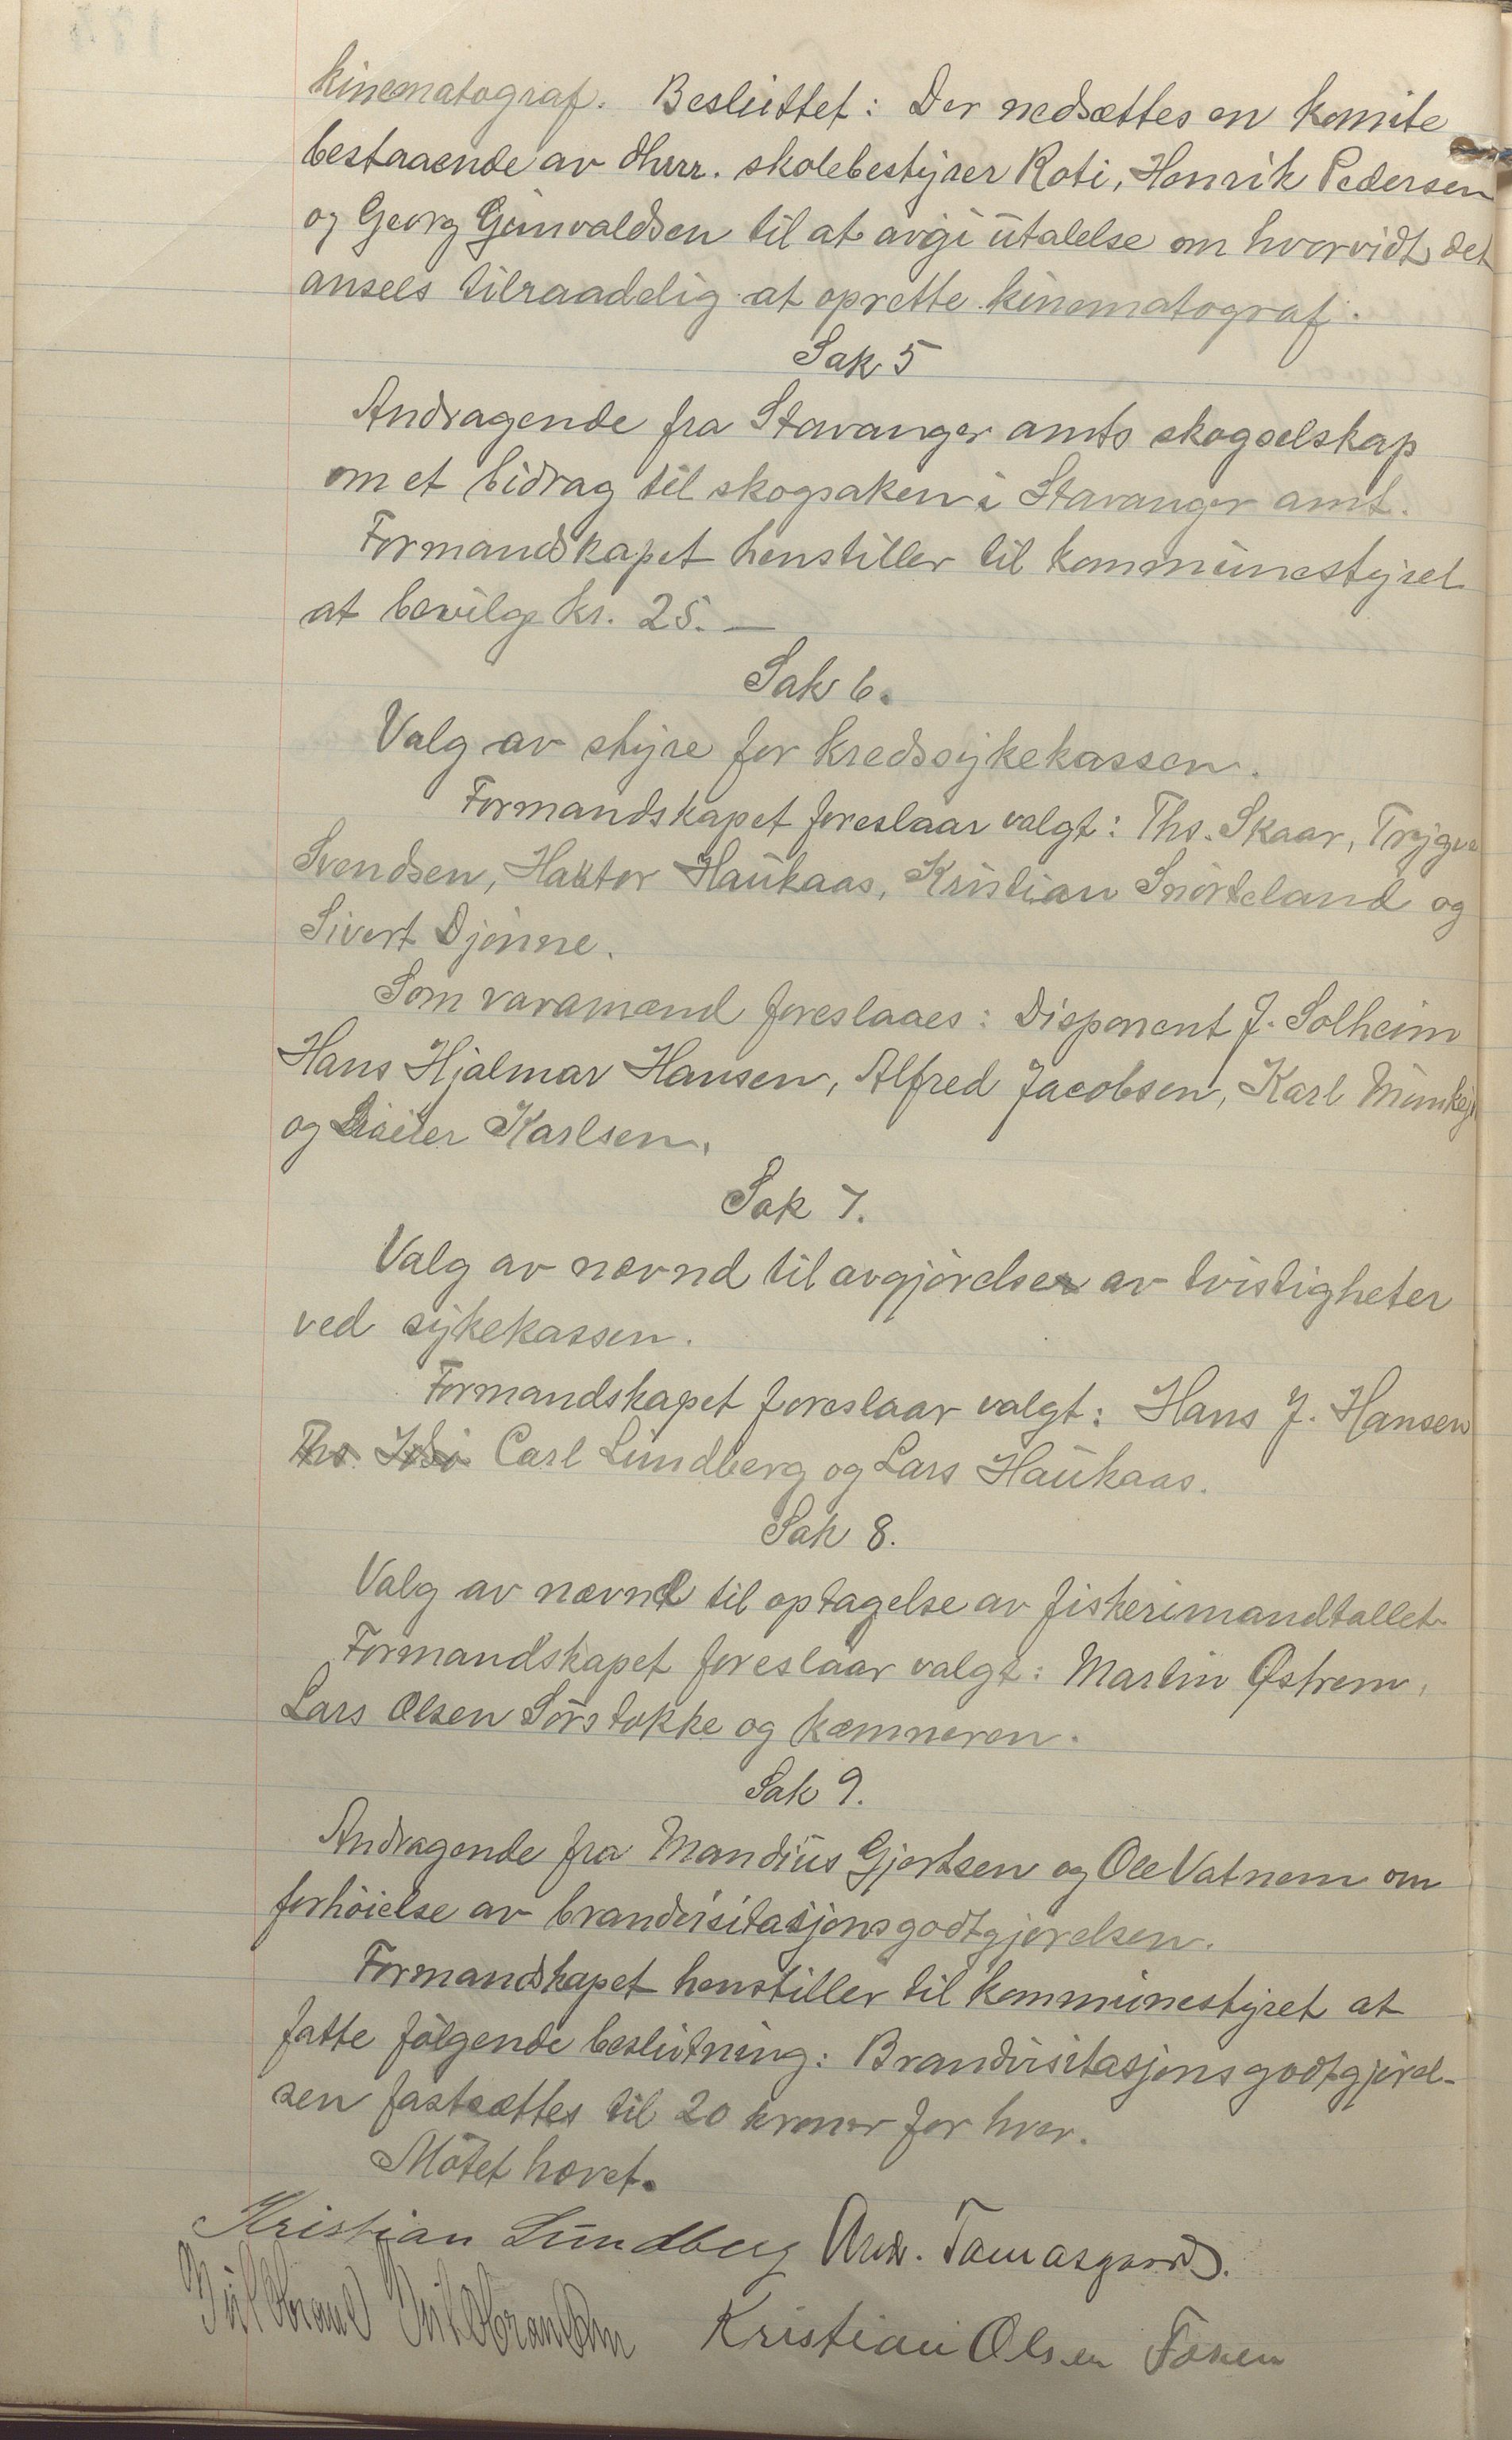 kinematograf. Besluttet: Der nedsættes en komite
bestaaende av dhrr. skolebestyrer Roti, Henrik Pedersen
og Georg Gunvaldsen til at avgi utalelse om hvorvidt det
ansees tilraadelig at oprette kinematograf.
Sak 5
Andragende fra Stavanger amts skogselskap
om et bidrag til skogsaken i Stavanger amt.
Formandskapet henstiller til kommunestyret
at bevilge kr. 25.—
Sak 6.
Valg av styre for kredssykekassen.
Formandskapet foreslaar valgt: Ths. Skaar, Trygve
Svendsen, Haktor Haukaas, Kristian Snørteland og
Sivert Djønne.
Som varamænd foreslaaes: Disponent J. Solheim
Hans Hjalmar Hansen, Alfred Jacobsen, Karl
og Karlsen.
Sak 7.
Valg av nævnd til avgjørelse av tvistigheter
ved sykekassen.
Formandskapet foreslaar valgt: Hans J. Hansen
Ths. Carl Lundberg og Lars Haukaas.
Sak 8.
Valg av nævnd til optagelse av fiskerimandtallet
Formandskapet foreslaar valgt: Martin Østrem,
Lars Olsen Sørstokke og kæmneren.
Sak 9.
Andragende fra Mandius Gjertsen og Ole Vatnem om
forhøielse av brandvisitasjonsgodtgjørelsen.
Formandskapet henstiller til kommunestyret at
fatte følgende beslutning: Brandvisitasjonsgodtgjørel-
sen fastsættes til 20 kroner for hver.
Møtet hævet.
Kristian Lundberg Andr. Tamasgaard.
Hildbrand Hildbrandsen Kristian Olsen Fosen